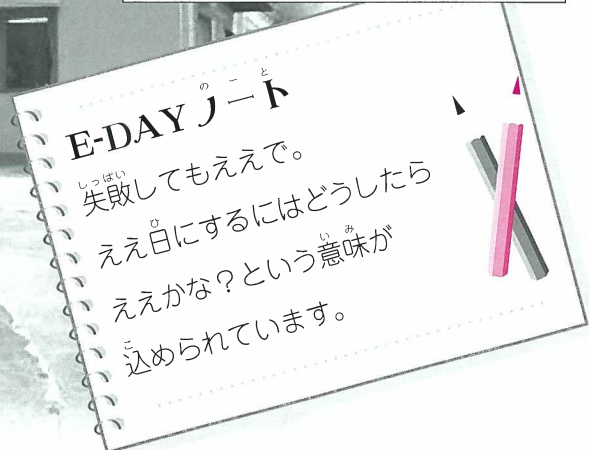 E-DAYノート
失敗してもええで。
ええ日にするにはどうしたら
ええかな？という意味が
込められています。